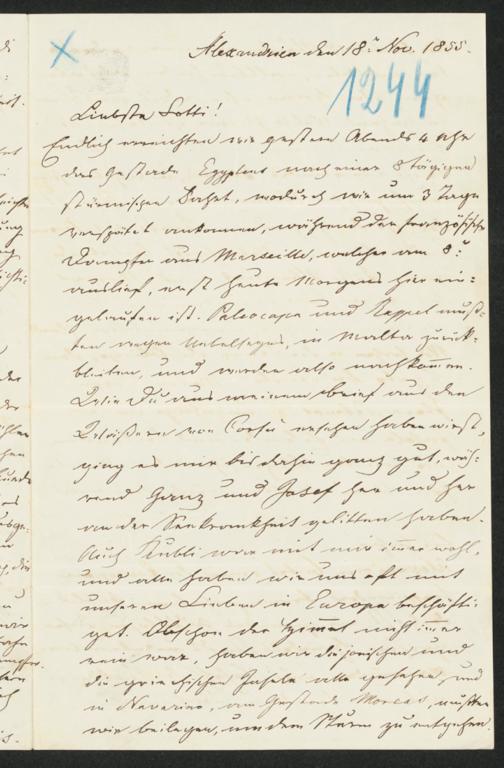 Alexandrien den 18.ᵗ Nov. 1855.
1244
Liebste Lotti!
Endlich erreichten wir gestern Abends 4 Uhr
das Gestade Egyptens nach einer 8 tägigen
stürmischen Fahrt, wodurch wir um 3 Tage
verspätet ankamen, während der französische
Dampfer aus Marseille, welcher am 8.ᵗ
auslief, erst heute Morgens hier ein-
gelaufen ist. Paleocapa und Rappel muß-
ten wegen Uebelseyns, in Malta zurück-
bleiben, und werden also nachkommen.
Wie Du aus meinem Brief aus den
Gewässern von Corfu ersehen haben wirst,
ging es mir bis dahin ganz gut, wäh-
rend Ganz und Josef hin und her
an der Seekrankheit gelitten haben.
Auch Kubli war mit mir immer wohl,
und alle haben wir uns oft mit
unseren Lieben in Europa beschäfti-
get. Obschon der Himmel nicht immer
rein war, haben wir die jonischen und
die griechischen Inseln alle gesehen, und
in Navarino, am Gestade Moreas, mußten
wir beilegen, um dem Sturm zu entgehen.